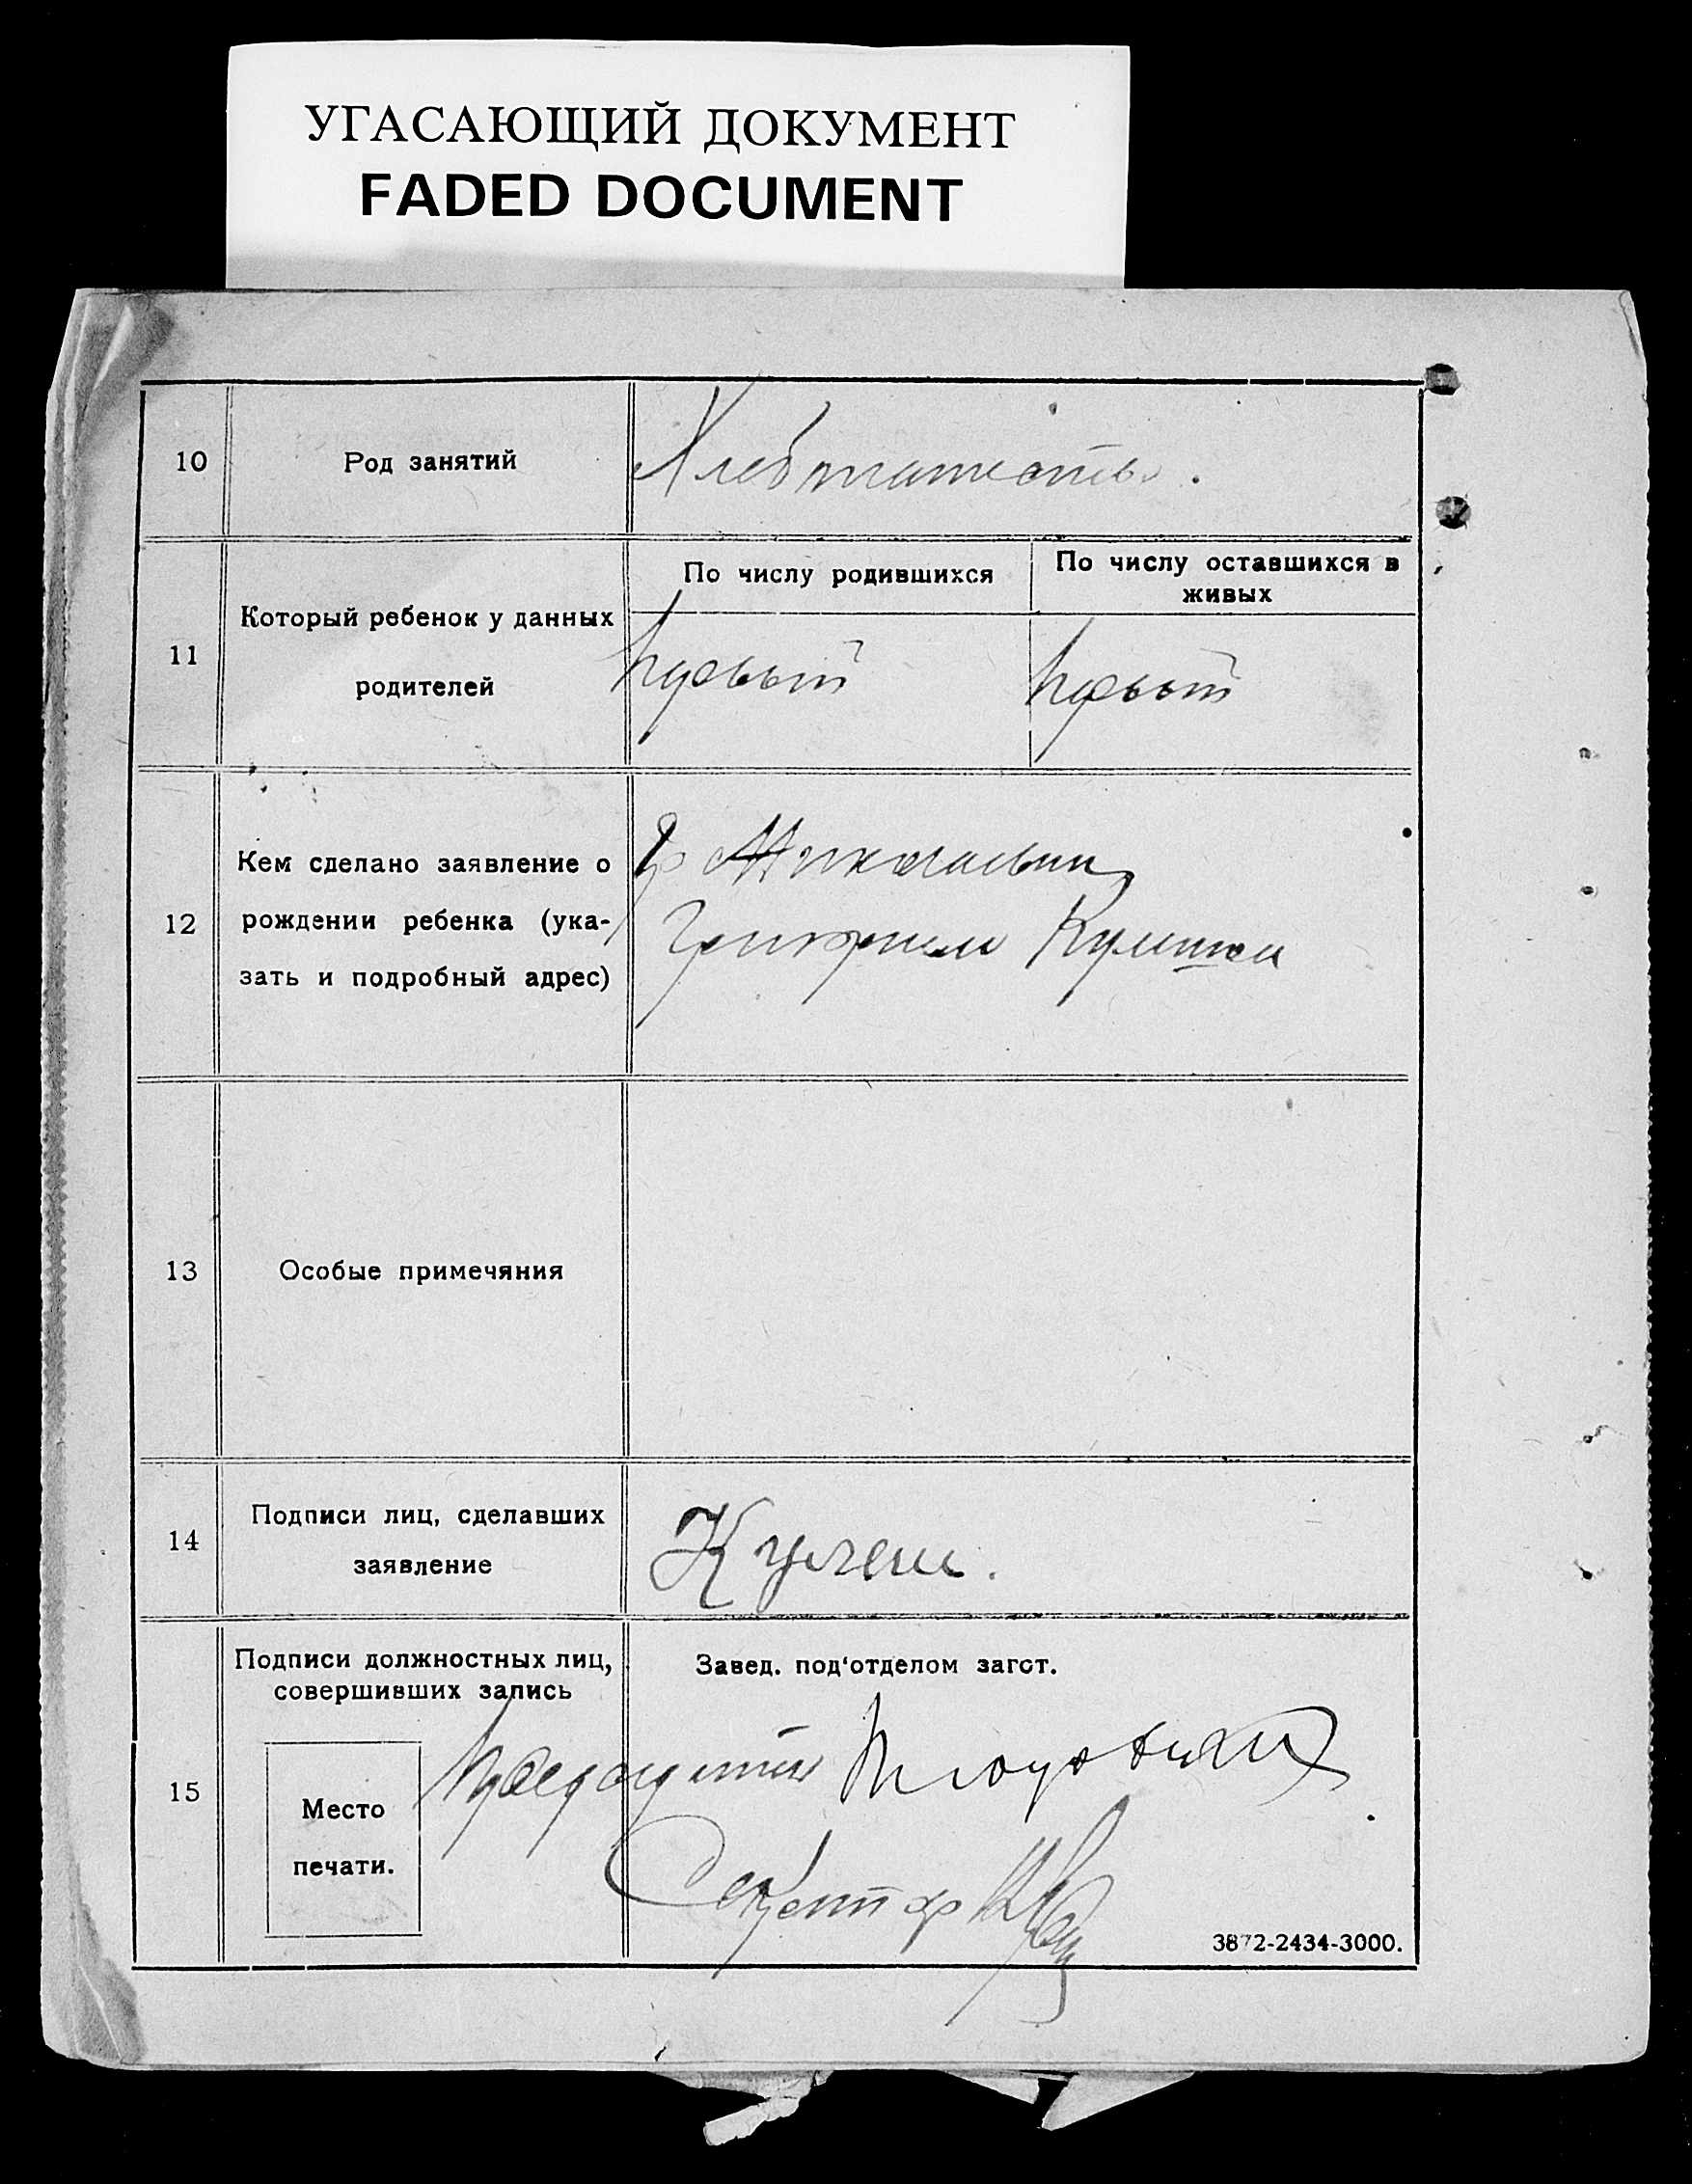 УГАСАЮЩИЙ ДОКУМЕНТ
FADED DOCUMENT
10 Род занятий Хлебопашество.
11 Который ребенок у данных родителей
По числу родившихся
По числу оставшихся в живых
первый первый
12 Кем сделано заявление о
рождении ребенка (ука-
зать и подробный адрес)
Гр
13 Особые примечяния
14 Подписи лиц, сделавших
заявление
Кулеш.
15 Подписи должностных лиц,
совершивших запись
Завед. под‘отделом загст.
Место
печати.
Председатель
Секретар
3872-2434-3000.